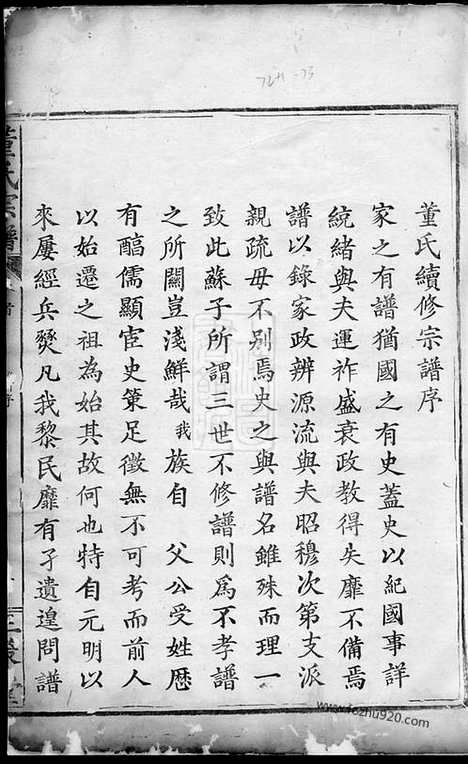 董氏續修宗譜序
家之有譜猶國之有史蓋史以紀國事詳
統緒與夫運祚盛衰政教得失靡不備焉
譜以錄家政辨源流與夫昭穆次第支派
親疏毋不别焉史之與譜名雖殊而理一
致此蘇子所謂三世不修譜則爲不孝譜
之所關豈淺鮮哉我族自　父公受姓歷
有醕儒顯宦史策足徵無不可考而前人
以始遷之祖為始其故何也特自元明以
來屢經兵燹凡我黎民靡有孑遺遑問譜
董氏宗譜
三
www.fozhu920.com